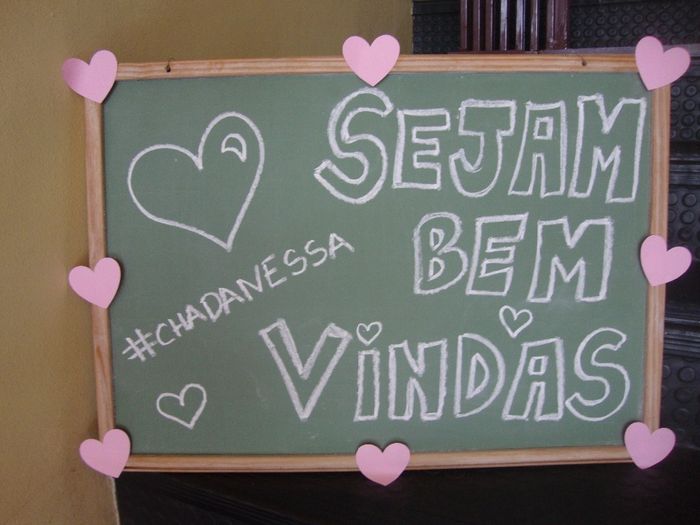 SEJAM
BEM
VINDAS
#CHADANESSA